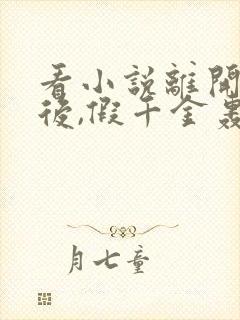 看小說離開
後,假千金轟
月七童